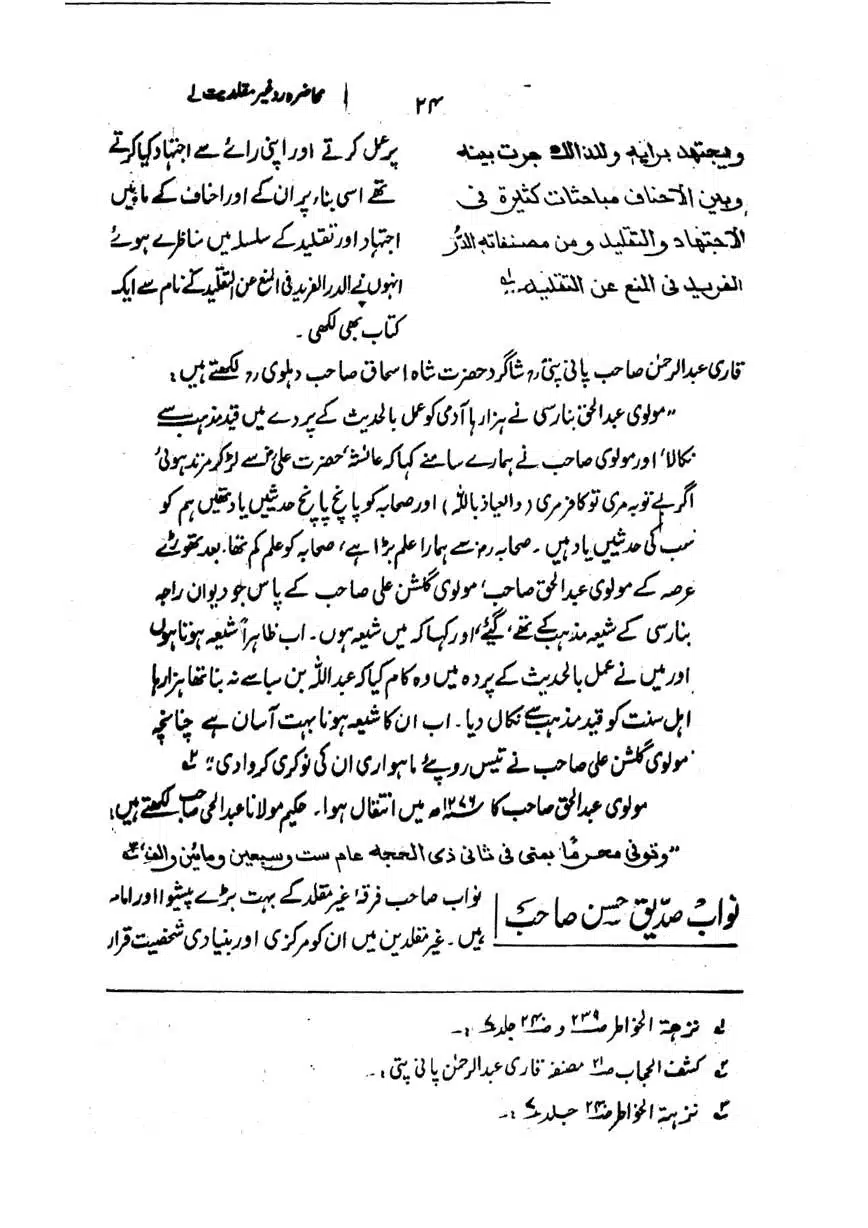 ۲۴
محاضرہ رد غیر مقلدیت ۱
ویجتهد برایه ولذالك جرت بینه
وبین الاحناف مباحثات کثیرة فی
الاجتهاد والتقلید ومن مصنفاته الدُّر
الفرید فی المنع عن التقلید۔ لہ
پر عمل کرتے اور اپنی رائے سے اجتہاد کیا کرتے
تھے اسی بناء پر ان کے اور احناف کے مابین
اجتہاد اور تقلید کے سلسلہ میں مناظرے ہوئے
انہوں نے الدر الفرید فی المنع عن التقلید کے نام سے ایک
کتاب بھی لکھی۔
قاری عبدالرحمٰن صاحب پانی پتیؒ شاگرد حضرت شاہ اسحاق صاحب دہلویؒ لکھتے ہیں:
”مولوی عبدالحق بنارسی نے ہزارہا آدمی کو عمل بالحدیث کے پردے میں قید مذہب سے
نکالا، اور مولوی صاحب نے ہمارے سامنے کہا کہ عائشہ، حضرت علیؓ سے لڑ کر مرتد ہوئی
اگر بے توبہ مری تو کافر مری (والعیاذ باللہ) اور صحابہ کو پانچ پانچ حدثیں یاد تھیں ہم کو
سب کی حدثیں یاد ہیں۔ صحابہ رضؓ سے ہمارا علم بڑا ہے، صحابہ کو علم کم تھا، بعد تھوڑے
عرصہ کے مولوی عبدالحق صاحب، مولوی گلشن علی صاحب کے پاس جو دیوان راجہ
بنارس کے شیعہ مذہب کے تھے، گئے، اور کہا کہ میں شیعہ ہوں۔ اب ظاہراً شیعہ ہوتا ہوں
اور میں نے عمل بالحدیث کے پردہ میں وہ کام کیا کہ عبداللہ بن سبا سے نہ بنا تھا ہزارہا
اہل سنت کو قید مذہب سے نکال دیا۔ اب ان کا شیعہ ہونا بہت آسان ہے چنانچہ
مولوی گلشن علی صاحب نے تیس روپے ماہواری ان کی نوکری کروا دی“؛ ۲
مولوی عبدالحق صاحب کا ۱۲۷۶ھ میں انتقال ہوا۔ حکیم مولانا عبدالحی صاحب لکھتے ہیں:
”وتوفی محرمًا بمنی فی ثانی ذی الحجه عام ست وسبعین ومائتین والف“ ۳
نواب صدیق حسن صاحبؒ
نواب صاحب فرقۂ غیر مقلد کے بہت بڑے پیشوا اور امام
ہیں۔ غیر مقلدین میں ان کو مرکزی اور بنیادی شخصیت قرار
۱ نزہة الخواطر صـ۲۳۹ و صـ۲۴۰ جلد ۷ :۔
۲ کشف الحجاب صـ۲۱ مصنفہ قاری عبدالرحمٰن پانی پتی :۔
۳ نزہة الخواطر صـ۲۴۰ جلد ۷ :۔